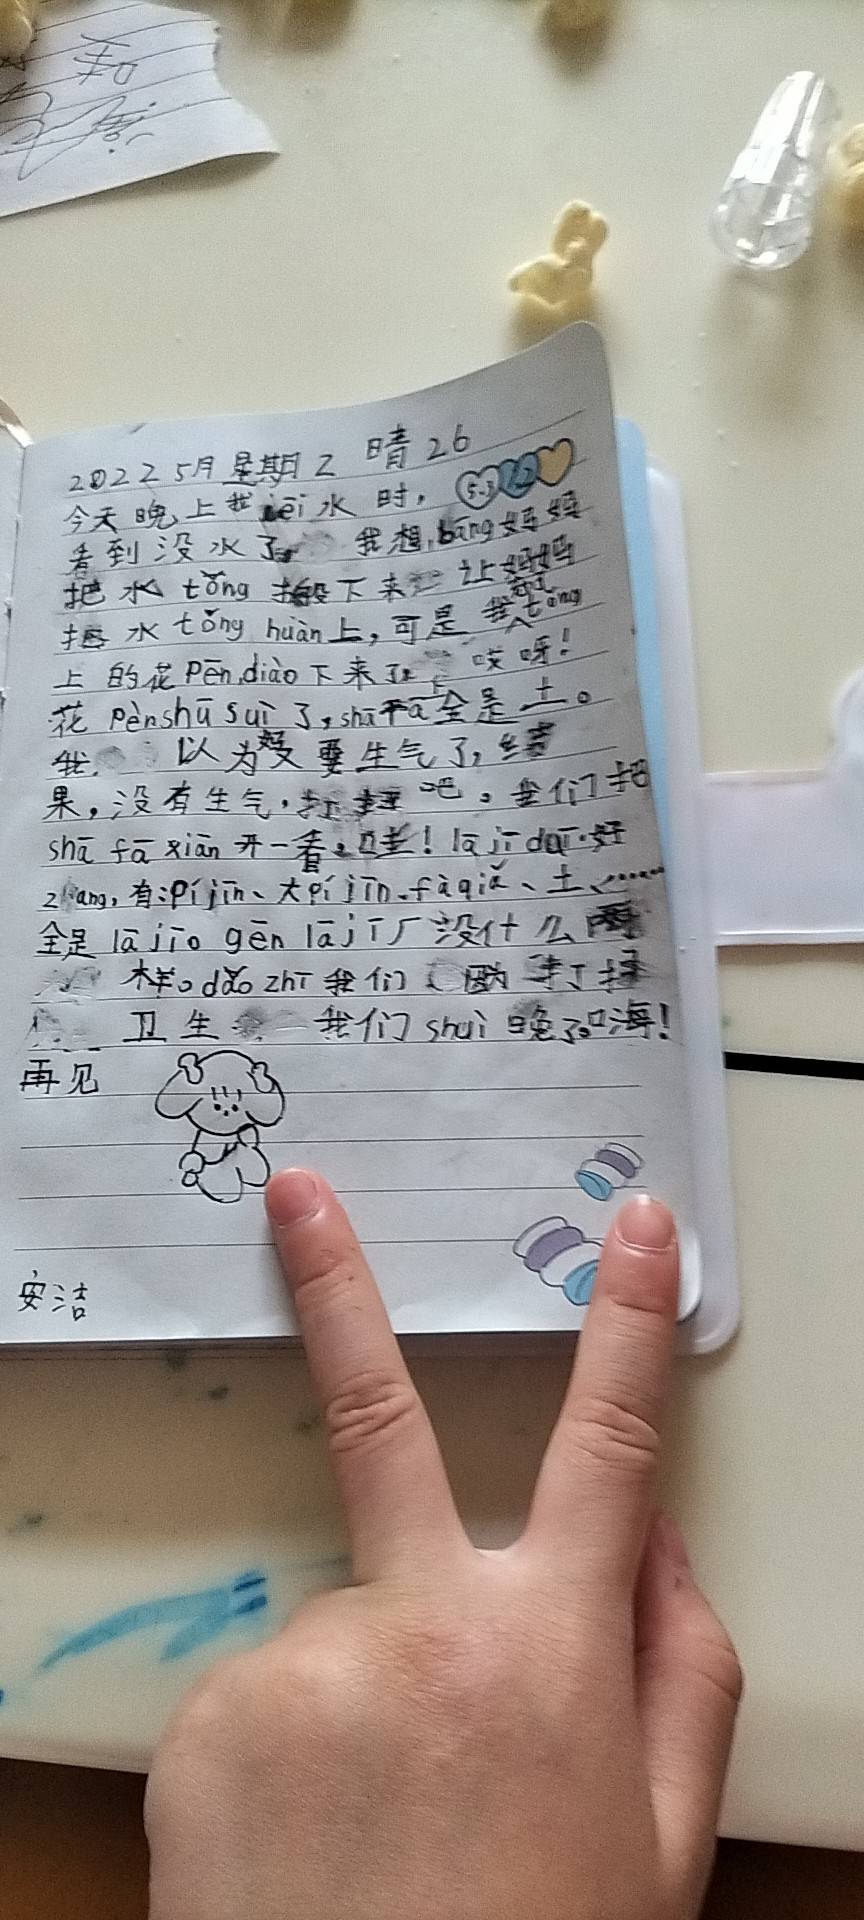 和
2022 5月 星期2 晴 26
5.3 12
今天晚上我jiēi水时，
看到没水了 我想，bāng妈妈
把水tǒng搬下来 让妈妈
水tǒng huàn上，可是我 tǒng
上的花Pēn，diào下来了 哎呀！
花pènshū suì了，shā fā全是土。
我 以为 要生气了，结
果，没有生气， 吧。我们把
shā fā xiān开一看， 哇！lā jī duī·好
zhang，有：píjīn、大píjīn、fàqiǎ、土、……
全是lā jī。gēn lā jī厂没什么两
样。dǎo zhī我们 打扫
卫生 我们shuì晚了。 海！
再见
安洁